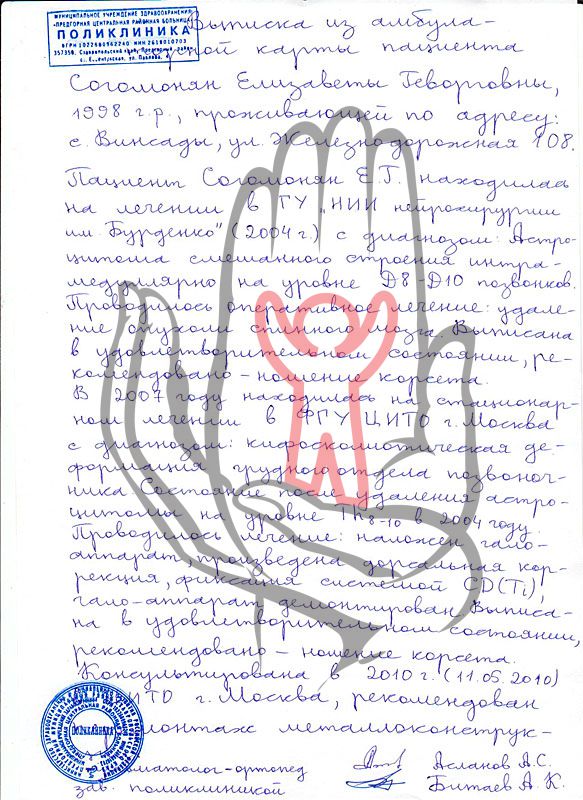 МУНИЦИПАЛЬНОЕ УЧРЕЖДЕНИЕ ЗДРАВООХРАНЕНИЯ
«ПРЕДГОРНАЯ ЦЕНТРАЛЬНАЯ РАЙОННАЯ БОЛЬНИЦА»
ПОЛИКЛИНИКА
Выписка из амбула-
карты пациента
Согомонян Елизаветы Геворговны,
1998 г.р., проживающей по адресу:
с. Винсады, ул. Железнодорожная 108.
Пациент Согомонян Е.Г. находилась
на лечении в ГУ „НИИ нейрохирургии
им. Бурденко" (2004 г.) с диагнозом: Астро-
цитома смешанного строения интра-
медулярно на уровне Д8-Д10 позвонков.
Проводилось оперативное лечение: удале-
ние опухоли спинного мозга. Выписана
в удовлетворительном состоянии, ре-
комендовано - ношение корсета.
В 2007 году находилась на стационар-
ном лечении в ФГУ ЦИТО г. Москва
с диагнозом: кифосколиотическая де-
формация грудного отдела позвоноч-
ника. Состояние после удаления астро-
цитомы на уровне Th8-10 в 2004 году.
Проводилось лечение: наложен гало-
аппарат, произведена дорсальная кор-
рекция, фиксация системой CD(Ti),
гало-аппарат демонтирован. Выписа-
на в удовлетворительном состоянии,
рекомендовано - ношение корсета.
Консультирована в 2010 г. (11.05.2010)
ИТО г. Москва, рекомендован
монтаж металлоконструк-
ПОЛИКЛИНИКА
матолог-ортопед Асланов А.С.
зав. поликлиникой Битаев А.К.